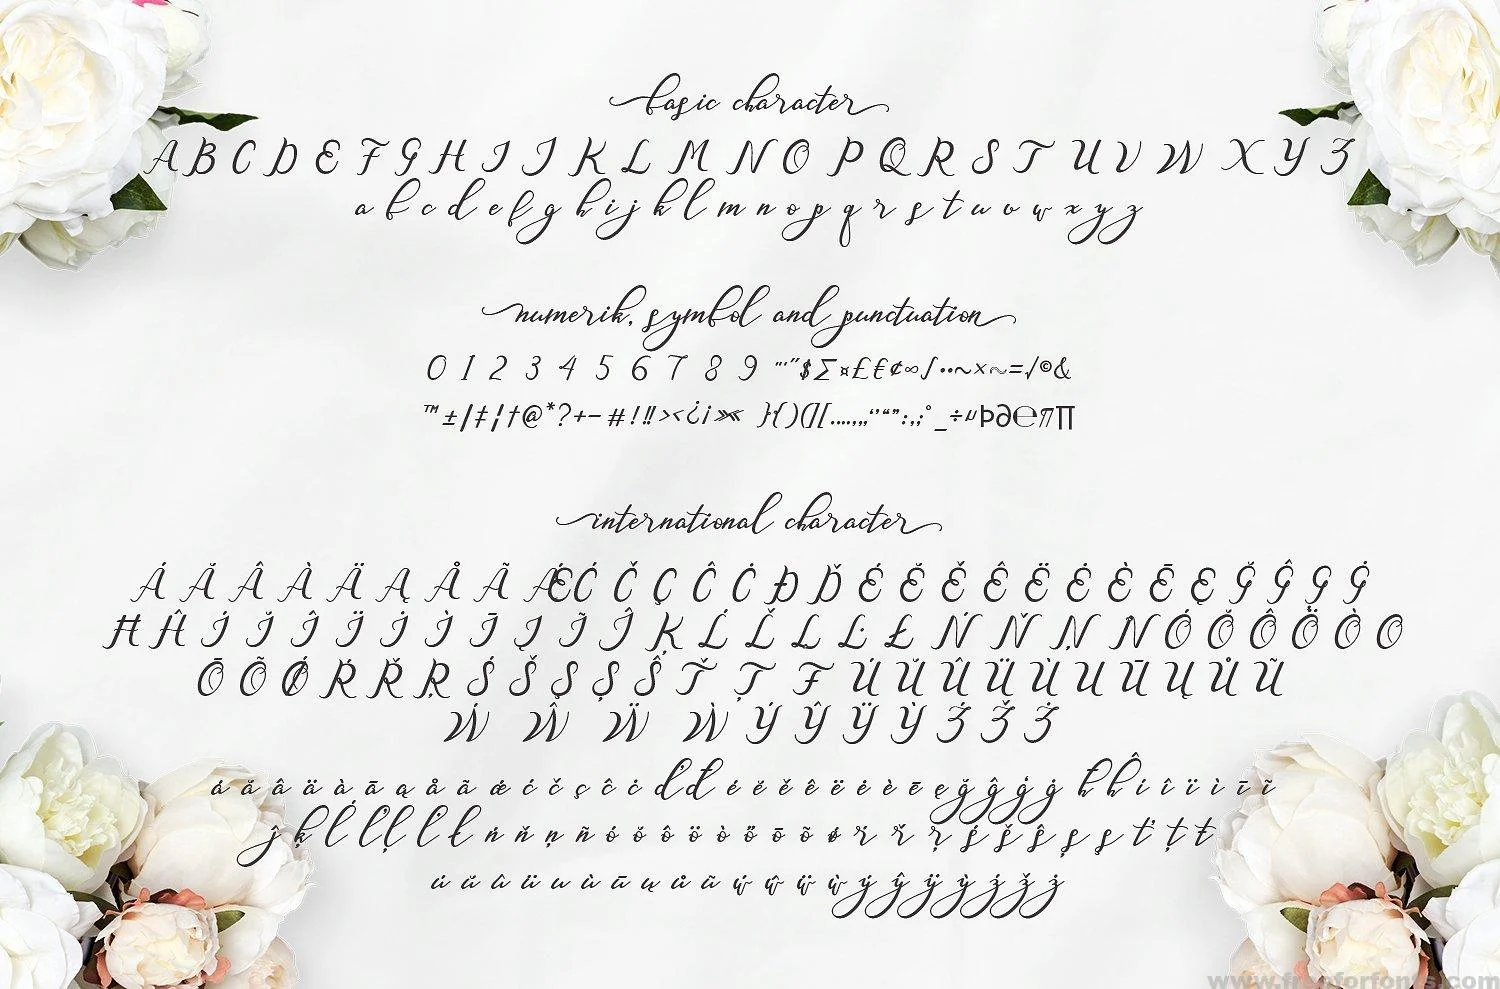 basic character
A B C D E F G H I J K L M N O P Q R S T U V W X Y Z
a b c d e f g h i j k l m n o p q r s t u v w x y z
numerik, symbol and punctuation
0 1 2 3 4 5 6 7 8 9 '"$∑¤£€¢∞∫··~×~=√©&
™±|‡¦†@*?+-#!!!><¿¡»« }{)(][.…,„‘’“”:,;°_÷µÞ∂℮π∏
international character
Á Ă Â À Ä Ą Å Ã Æ Ć Č Ç Ĉ Ċ Đ Ď É Ĕ Ě Ê Ë Ė È Ē Ę Ğ Ĝ Ģ Ġ
Ħ Ĥ Í Ĭ Î Ï İ Ì Ī Į Ĩ Ĵ Ķ Ĺ Ľ Ļ Ŀ Ł Ń Ň Ņ Ñ Ó Ŏ Ô Ö Ò O
Ō Õ Ǿ Ŕ Ř Ŗ Ś Š Ş Ș Ŝ Ť Ț Ŧ Ú Ŭ Û Ü Ù U Ū Ų Ů Ũ
Ẃ Ŵ Ẅ Ẁ Ý Ŷ Ÿ Ỳ Ź Ž Ż
á ă â ä à ā ą å ã æ ć č ç ĉ ċ ď đ é ĕ ě ê ë ė è ē ę ğ ĝ ģ ġ ħ ĥ í î ï ì ī ĩ
ĵ ķ ĺ ľ ļ ŀ ł ń ň ņ ñ ó ŏ ô ö ò ő ō õ ø ŕ ř ŗ ś š ŝ ş ș ť ț ŧ
ú ŭ û ü u ù ū ų ů ũ ẃ ŵ ẅ ẁ ý ŷ ÿ ỳ ź ž ż
www.freeforfonts.com